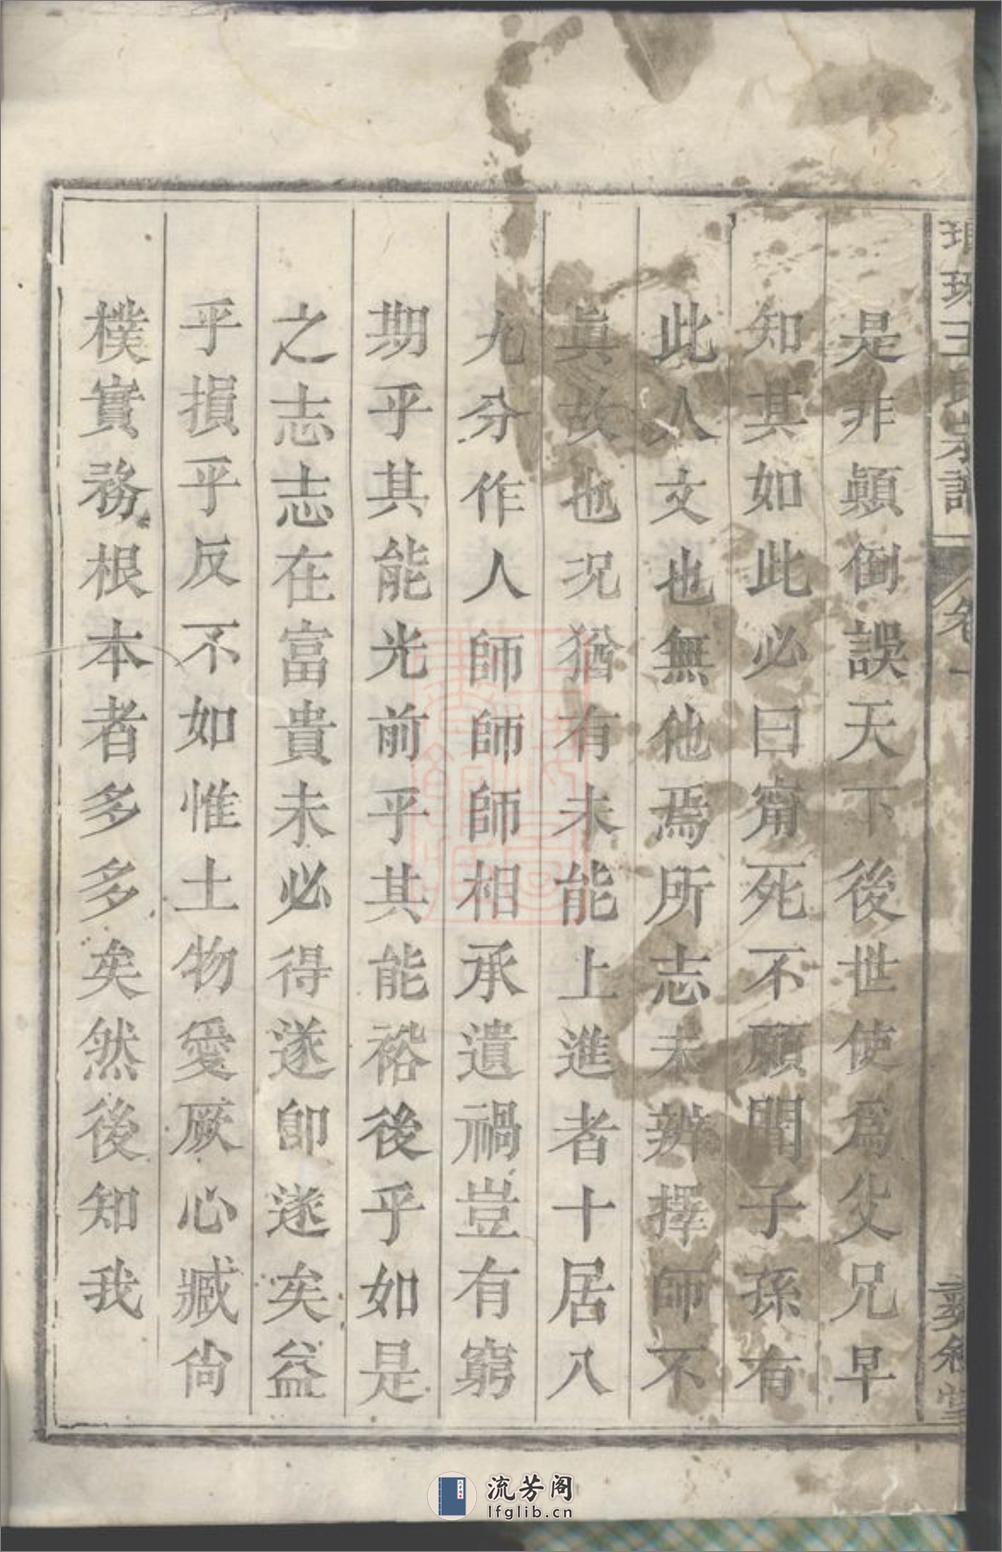 琅琊王氏宗譜 卷一 彝敘堂
是非顚倒誤天下後世使爲父兄早
知其如此必曰甯死不願聞子孫有
此人文也無他焉所志未辨擇師不
眞故也況猶有未能上進者十居八
九分作人師師師相承遺禍豈有窮
期乎其能光前乎其能裕後乎如是
之志志在富貴未必得遂卽遂矣益
乎損乎反不如惟土物愛厥心臧尙
樸實務根本者多多矣然後知我
流芳阁
lfglib.cn